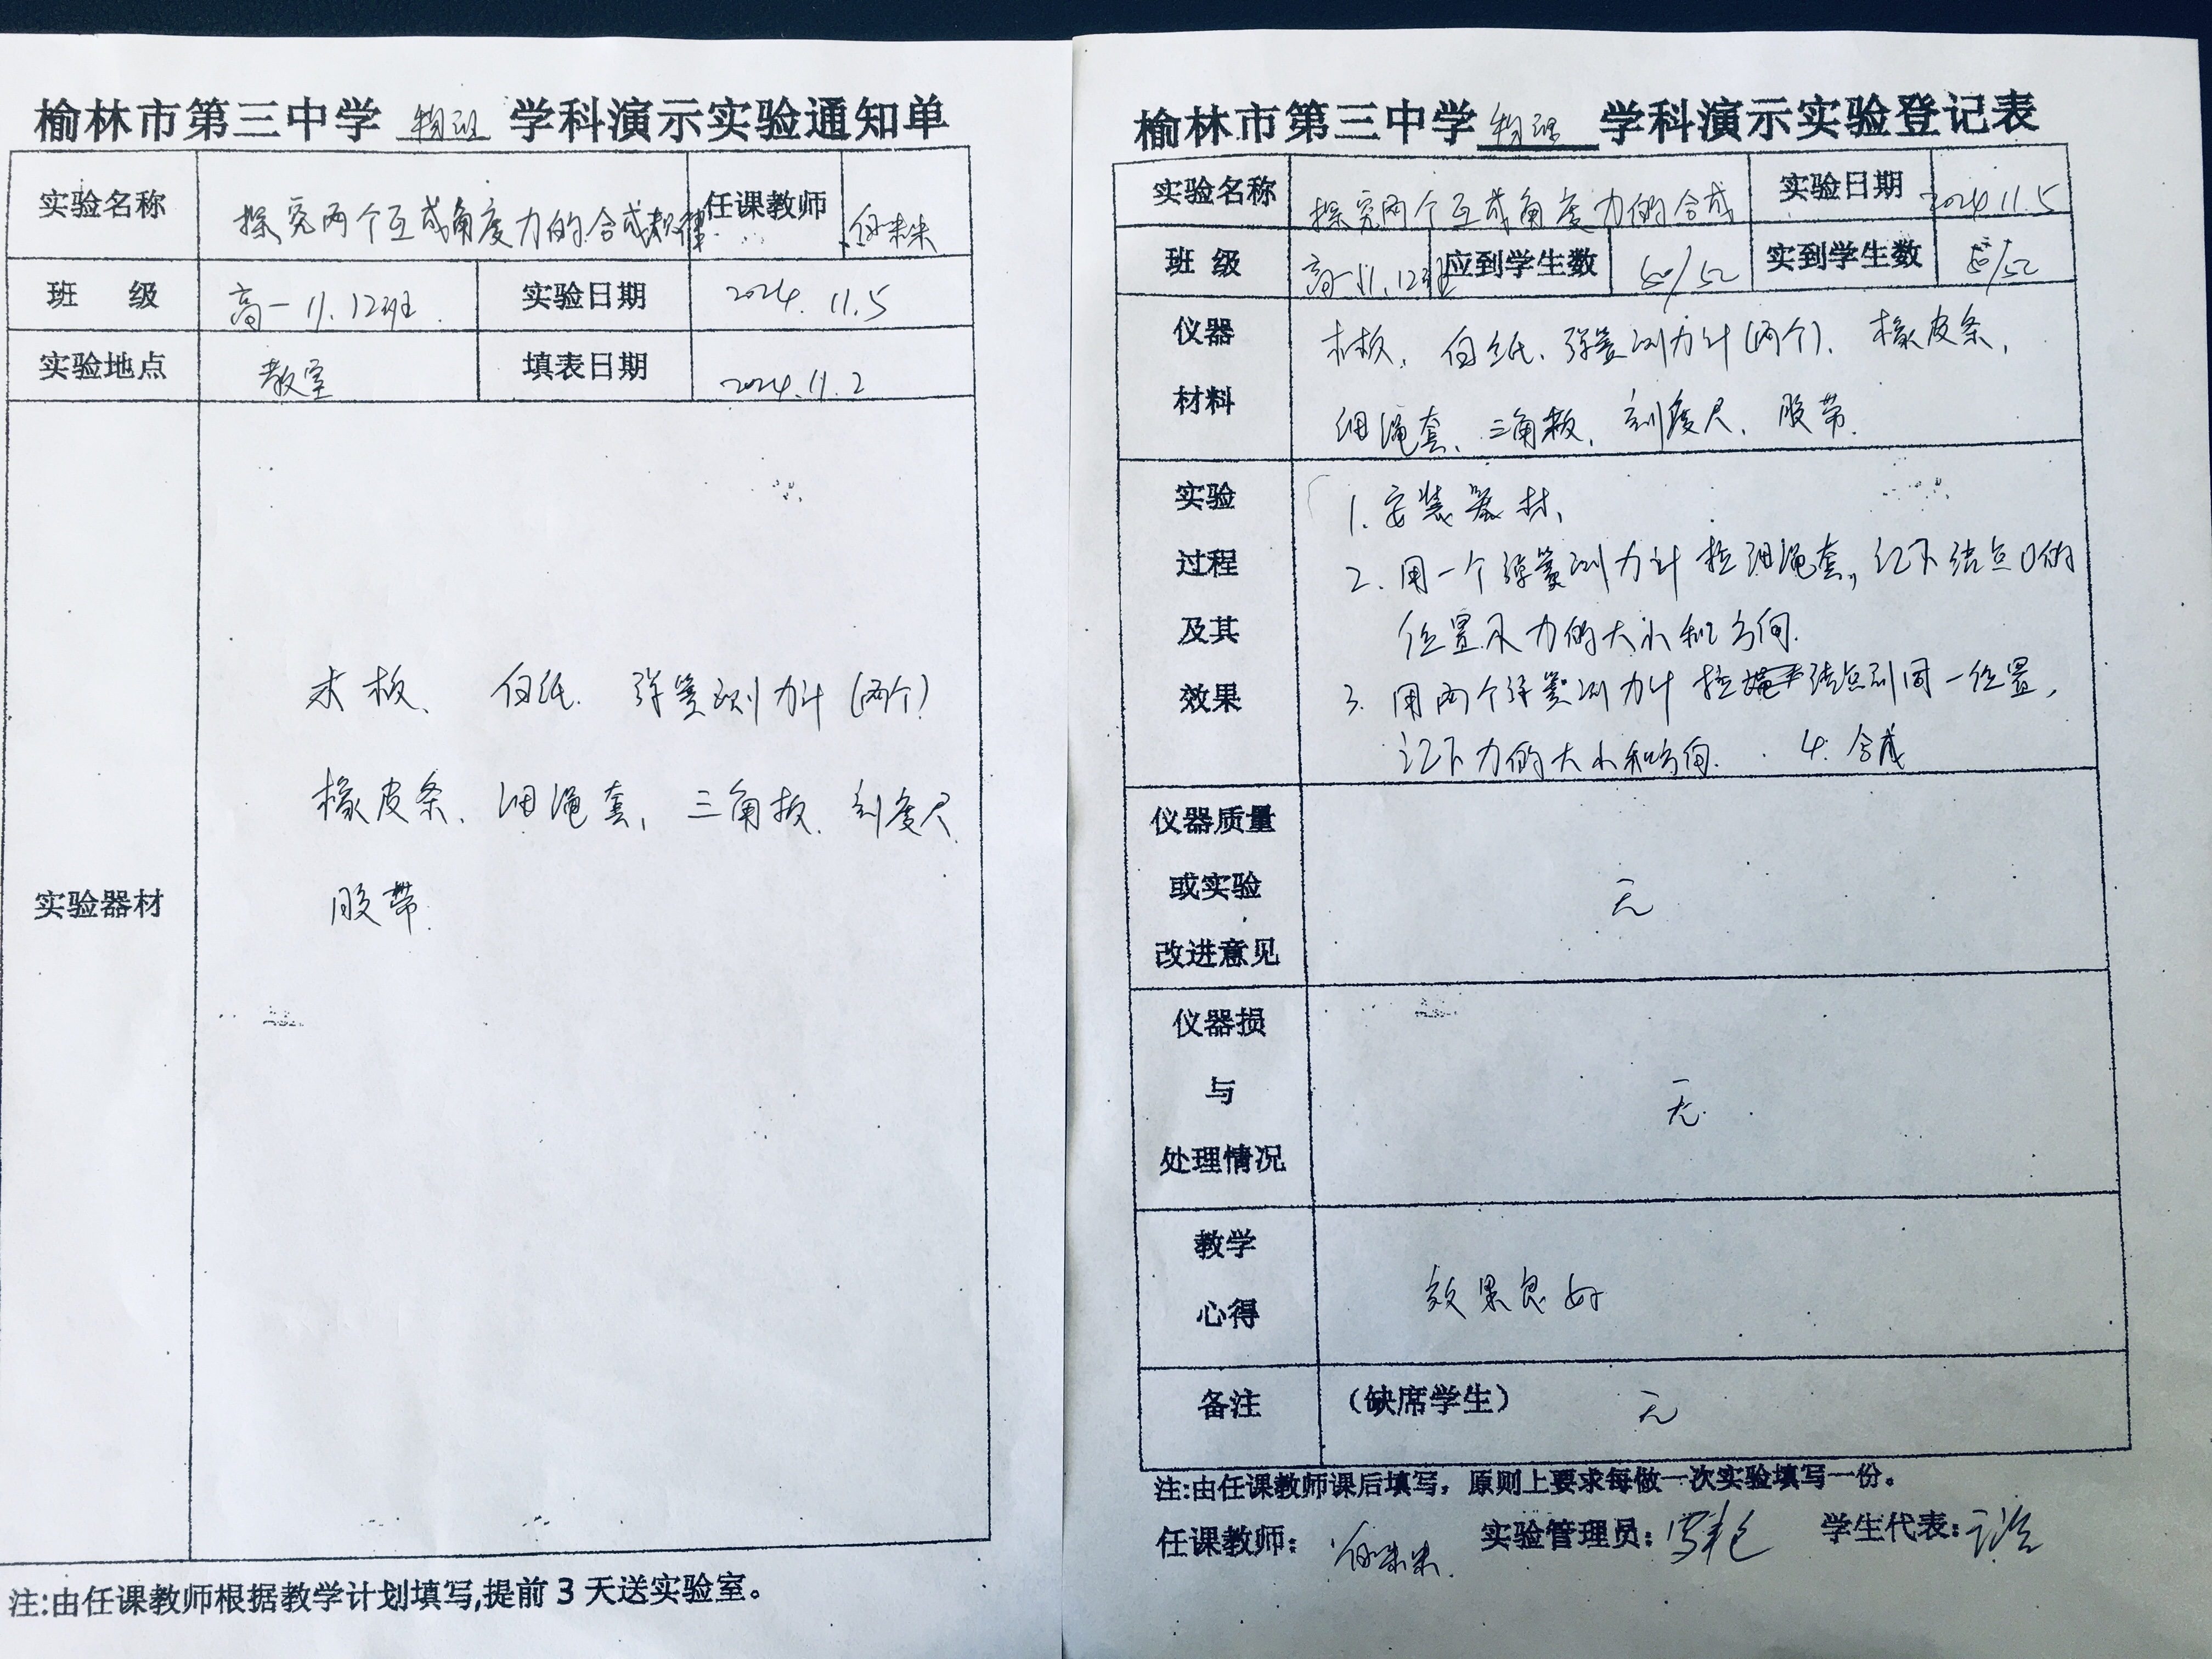 榆林市第三中学 物理 学科演示实验通知单
实验名称 探究两个互成角度力的合成规律 任课教师
班 级 高一11.12班 实验日期 2024.11.5
实验地点 教室 填表日期 2024.11.2
实验器材
木板、 白纸. 弹簧测力计(两个)
橡皮条、细绳套、三角板. 刻度尺
胶带.
注:由任课教师根据教学计划填写,提前3天送实验室。
榆林市第三中学 物理 学科演示实验登记表
实验名称 探究两个互成角度力的合成 实验日期 2024.11.5
班 级 高一11.12班 应到学生数 50/52 实到学生数 50/52
仪器材料
木板, 白纸、弹簧测力计(两个)、橡皮条,
细绳套、三角板, 刻度尺、胶带.
实验过程及其效果
1.安装器材,
2.用一个弹簧测力计拉细绳套,记下结点O的
位置及力的大小和方向.
3.用两个弹簧测力计拉结点到同一位置,
记下力的大小和方向. 4.合成
仪器质量或实验改进意见 无
仪器损与处理情况 无.
教学心得 效果良好
备注 (缺席学生) 无
注:由任课教师课后填写，原则上要求每做一次实验填写一份。
任课教师: 实验管理员: 学生代表: